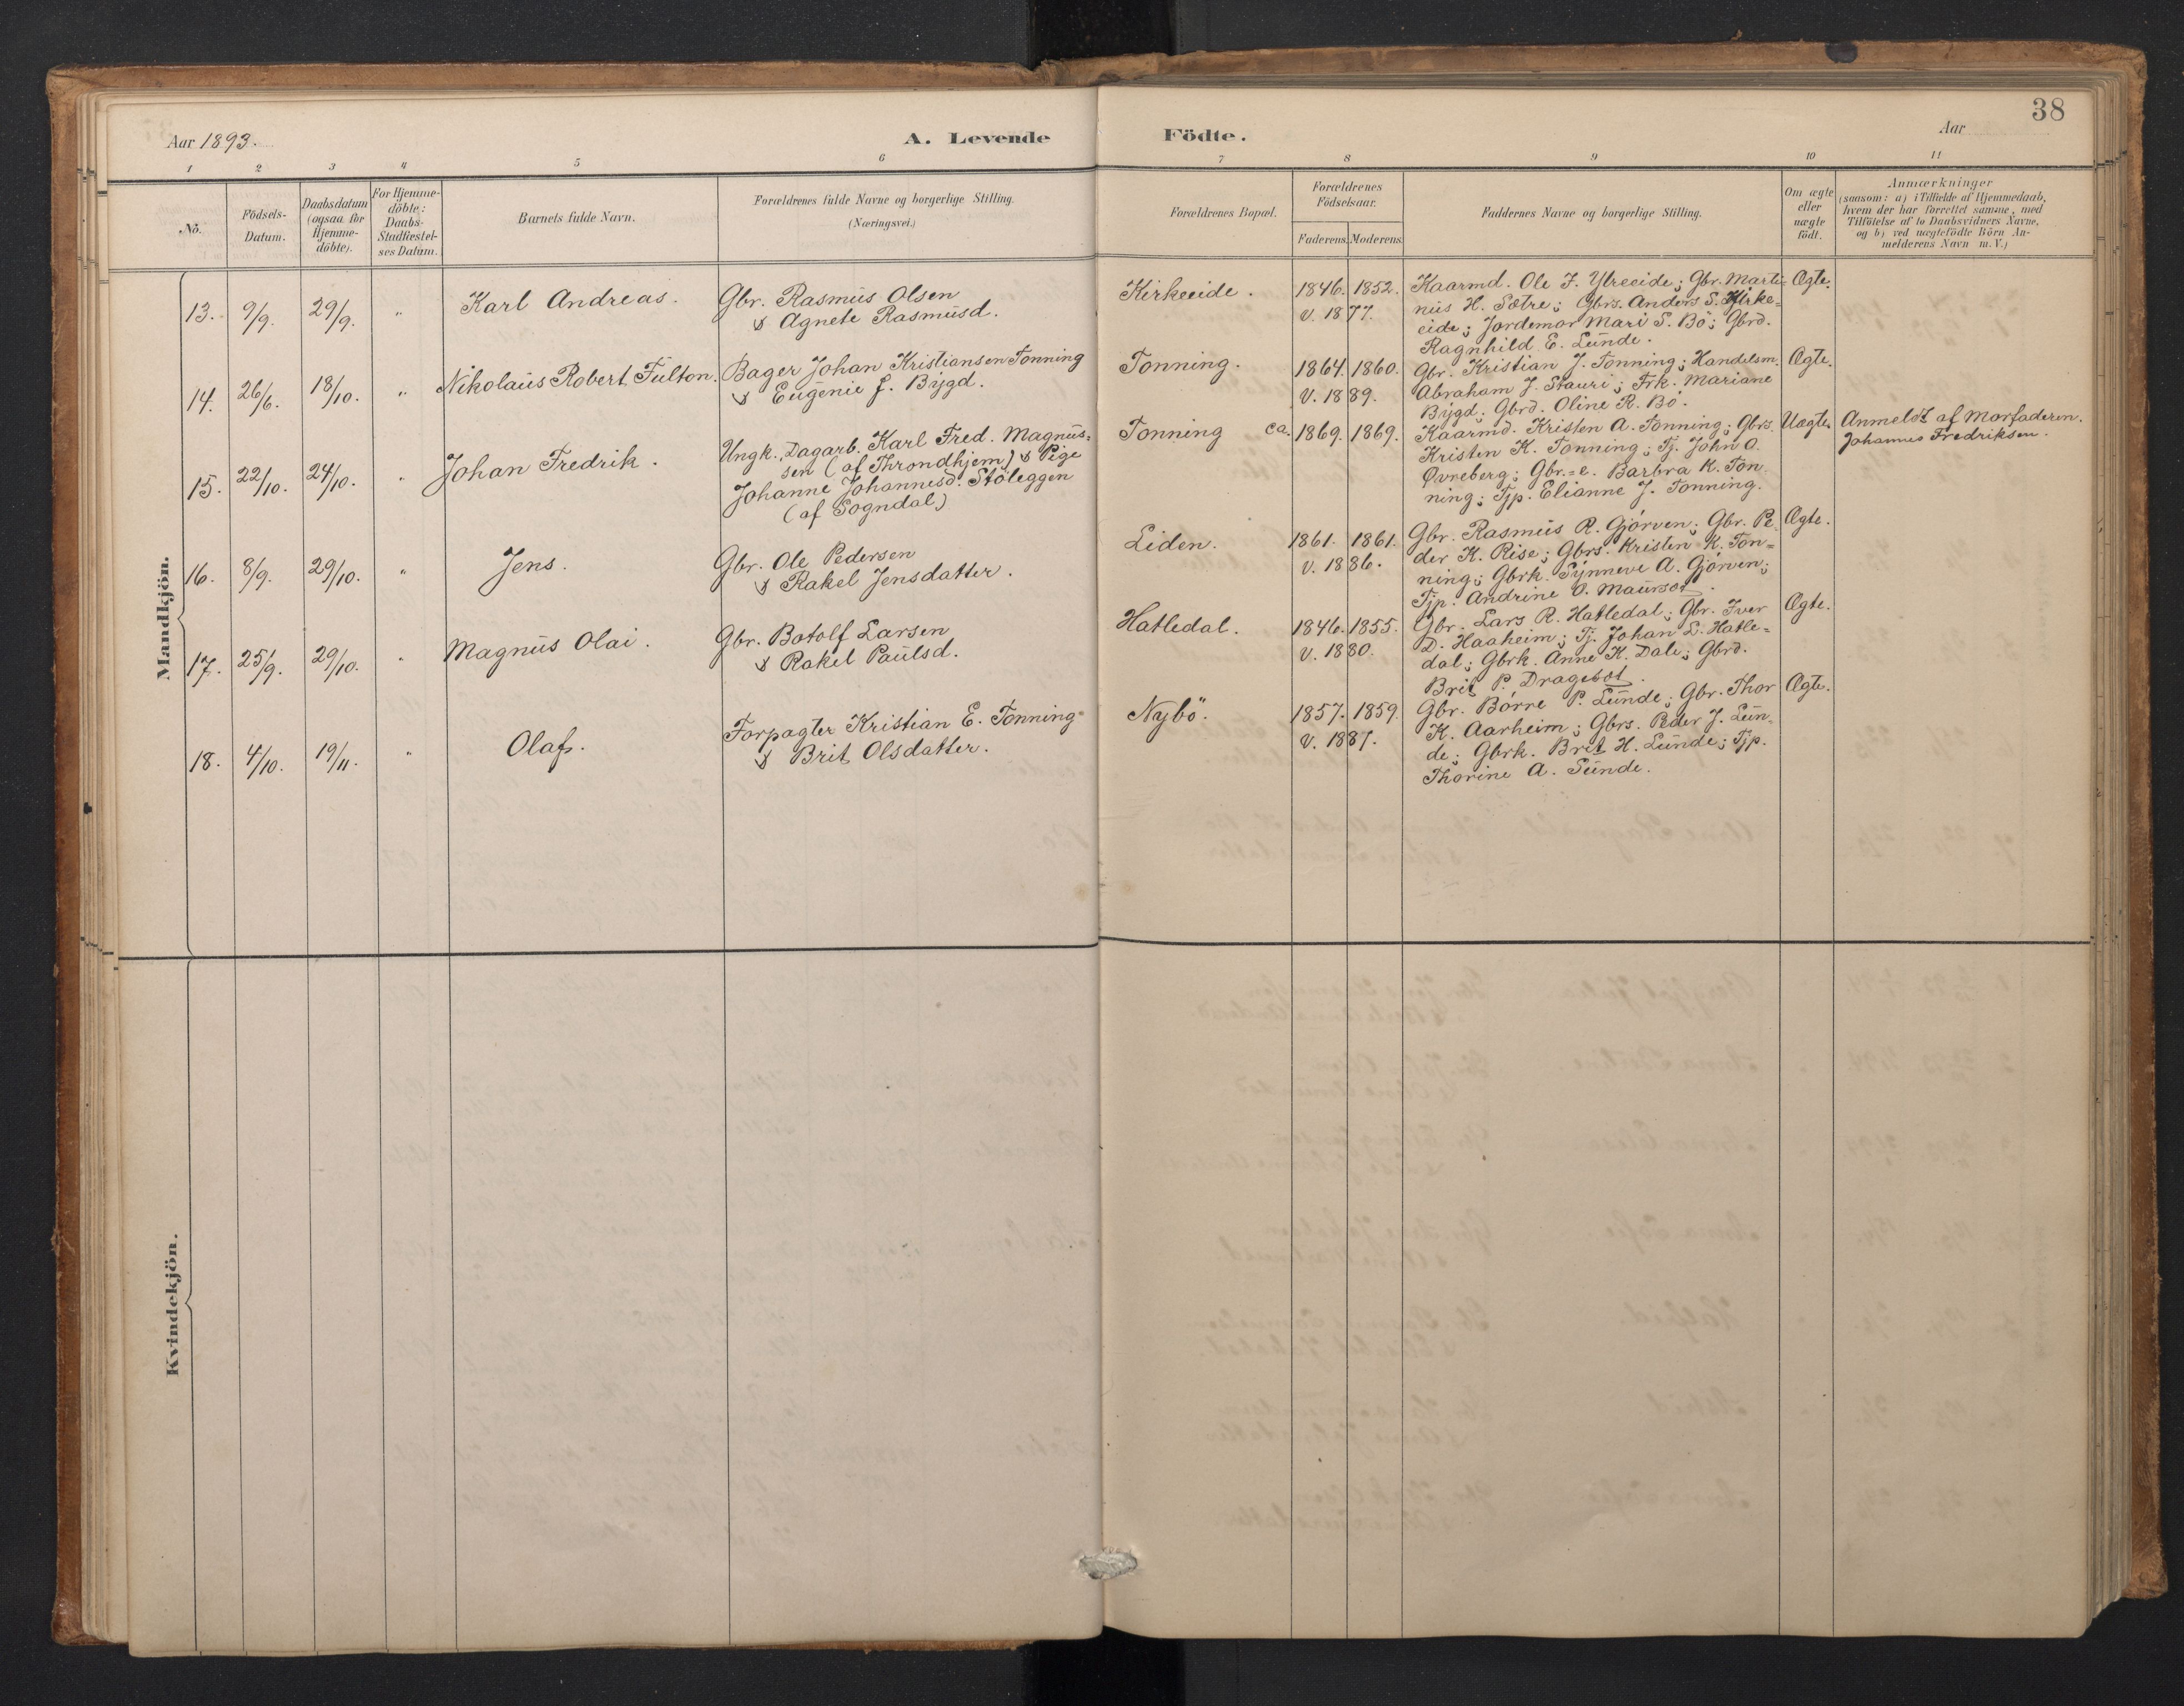 38
Aar 1893.
A. Levende
Födte.
Aar
1 2 3 4 5 6 7 8 9 10 11
Nō.
Födsels-
Datum.
Daabsdatum
(ogsaa for
Hjemme-
döbte).
For Hjemme-
döbte:
Daabs-
Stadfæstel-
ses Datum.
Barnets fulde Navn.
Forældrenes fulde Navne og borgerlige Stilling.
(Næringsvei.)
Forældrenes Bopæl.
Forældrenes
Födselsaar.
Faderens. Moderens.
Faddernes Navne og borgerlige Stilling.
Om ægte
eller
uægte
födt.
Anmærkninger
(saasom: a) i Tilfælde af Hjemmedaab,
hvem der har forrettet samme, med
Tilföielse af to Daabsvidners Navne,
og b) ved uægtefödte Börn An-
melderens Navn m. V.)
Mandkjön.
13. 9/9. 29/9. " Karl Andreas.
Gbr. Rasmus Olsen
& Agnete Rasmusd.
Kirkeeide.
1846. 1852.
v. 1877.
Kaarmd. Ole J. Ytreeide; Gbr. Marti-
nus H. Sætre; Gbrs. Anders S. Kirke-
eide; Jordemor Mari S. Bö; Gbrd.
Ragnhild E. Lunde.
Ægte.
14. 26/6. 18/10. " Nikolaus Robert Fulton.
Bager Johan Kristiansen Tonning
& Eugenie J. Bygd.
Tonning.
1864. 1860.
V. 1889.
Gbr. Kristian J. Tonning; Handelsm.
Abraham J. Stauri; Frk. Mariane
Bygd; Gbrd. Oline R. Bö.
Ægte.
15. 22/10. 24/10. " Johan Fredrik.
Ungk. Dagarb. Karl Fred. Magnus-
sen (af Throndhjem) & Pige
Johanne Johannesd. Stöleggen
(af Sogndal)
Tonning
ca. 1869. 1869.
Kaarmd. Kristen A. Tonning; Gbrs.
Kristen K. Tonning; Tj. John A.
Øvreberg; Gbr.=e. Barbra K. Ton-
ning; Tjp. Elianne J. Tonning.
Uægte.
Anmeldt af Morfaderen.
Johannes Fredriksen.
16. 8/9. 29/10. " Jens.
Gbr. Ole Pedersen
& Rakel Jensdatter.
Liden.
1861. 1861.
v. 1886.
Gbr. Rasmus R. Gjörven; Gbr. Pe-
der K. Rise; Gbrs. Kristen K. Ton=
ning; Gbrk. Synneve A. Gjörven;
Tjp. Andrine O. Maurset.
Ægte.
17. 25/9. 29/10. " Magnus Olai.
Gbr. Botolf Larsen
& Rakel Paulsd.
Hatledal.
1846. 1855.
v. 1880.
Gbr. Lars R. Hatledal; Gbr. Iver
D. Haaheim; Tj. Johan L. Hatle=
dal; Gbrk. Anne K. Dale; Gbrd.
Brit P. Dragesæt.
Ægte.
18. 4/10. 19/11. " Olaf.
Forpagter Kristian E. Tonning
& Brit Olsdatter.
Nybö.
1857. 1859.
v. 1887.
Gbr. Börre P. Lunde; Gbr. Thor
K. Aarheim; Gbrs. Peder J. Lun-
de; Gbrk. Brit H. Lunde; Tjp.
Thorine A. Sunde.
Ægte.
Kvindekjön.